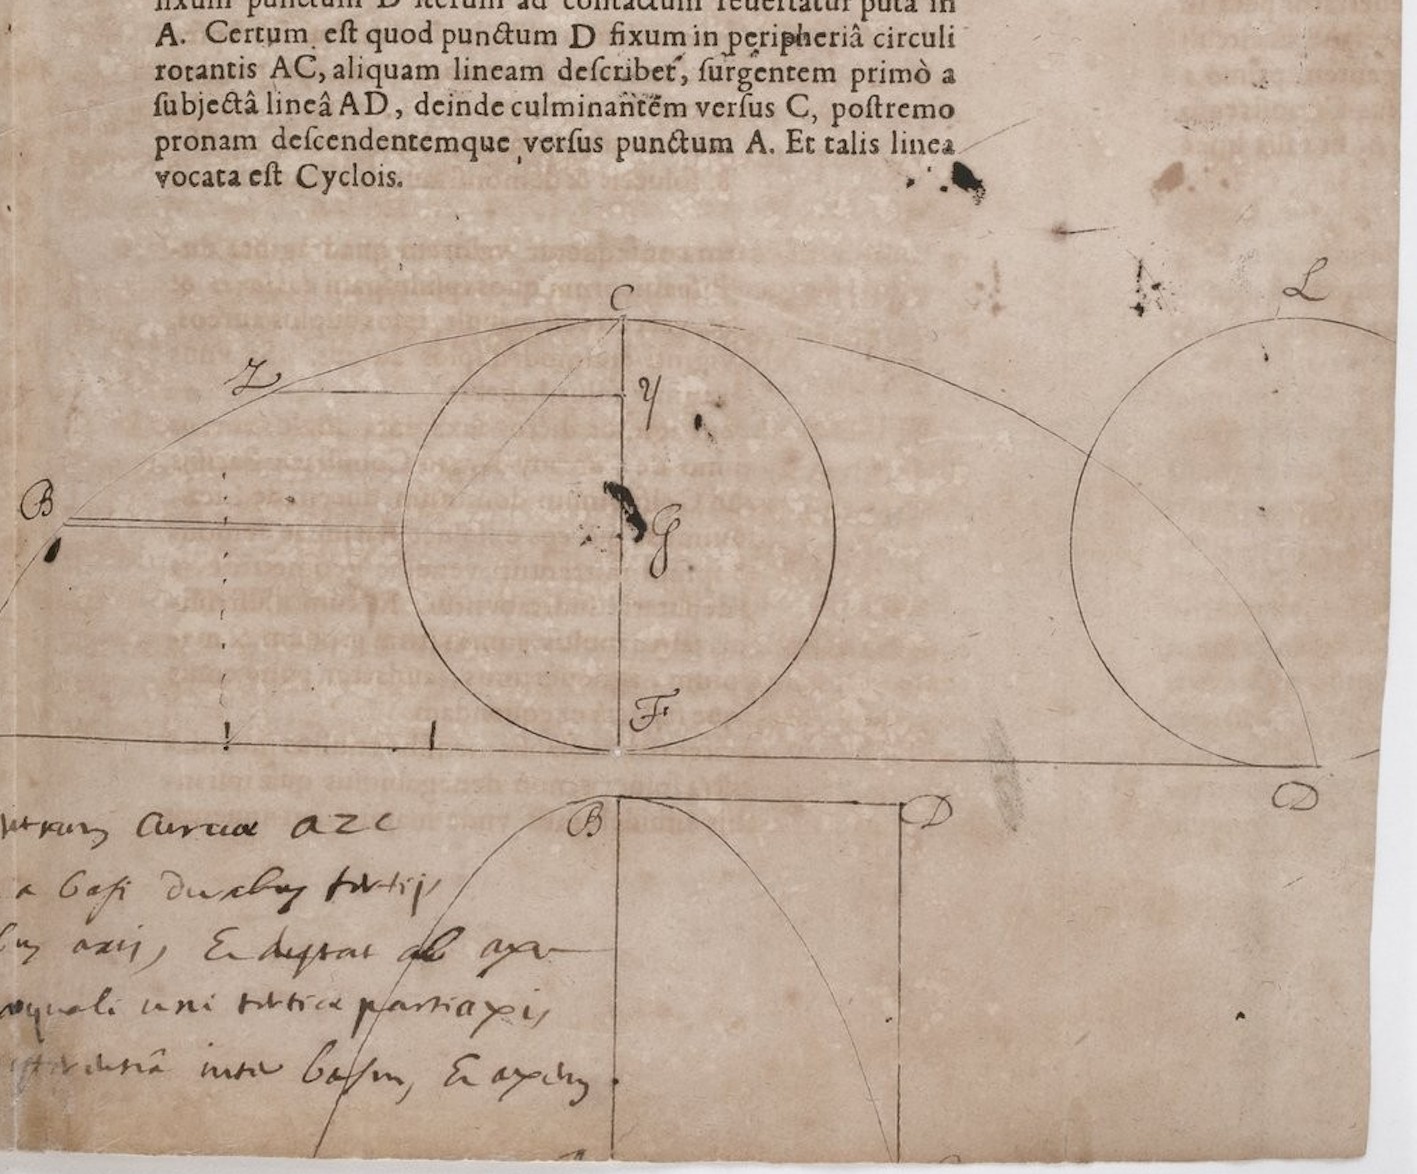 fixum punctum D iterum ad contactum revertatur puta in
A. Certum eſt quod punctum D fixum in peripheriâ circuli
rotantis AC, aliquam lineam deſcribet, ſurgentem primò a
ſubjectâ lineâ AD, deinde culminantem verſus C, poſtremo
pronam deſcendentemque verſus punctum A. Et talis linea
vocata eſt Cyclois.
C
L
Z
Y
B
G
F
D
B
D
curvæ AZC
a basi duabus tertijs
axis, & distat ab axe
æquali uni tertiæ parti axis,
inter basim, & axem.